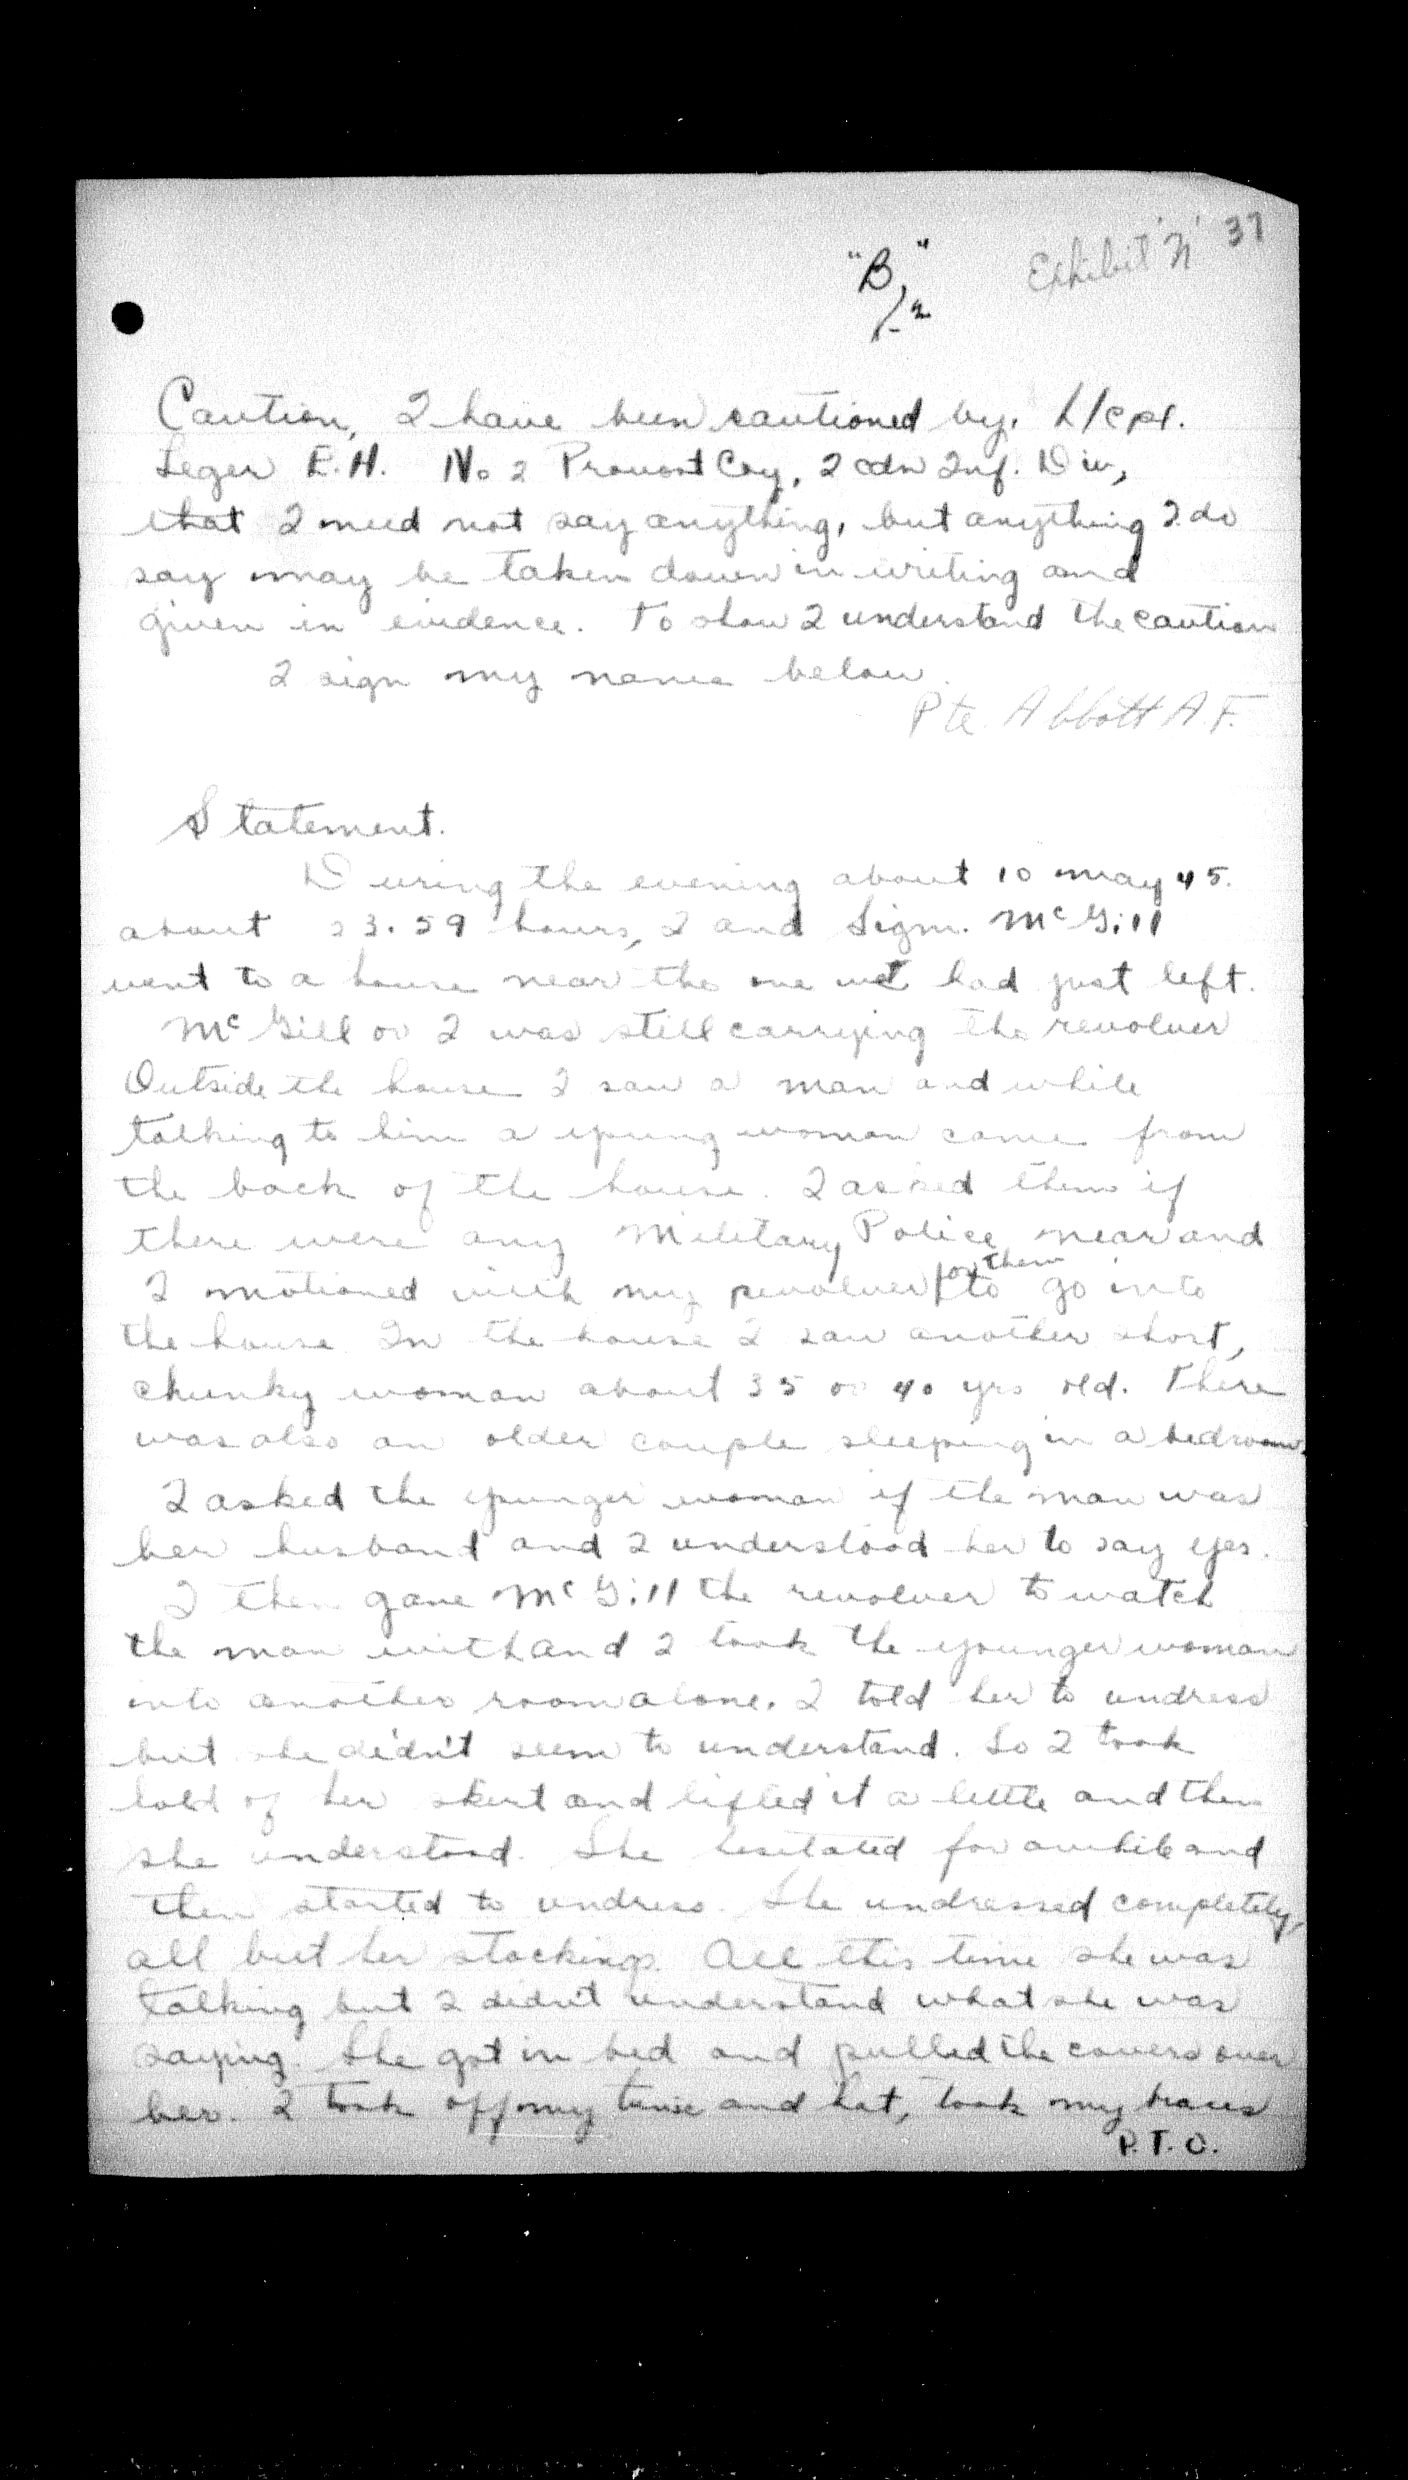 37
Exhibit 'N'
"B"
/-2
Caution, I have been cautioned by. L/cpl.
Leger E.H. No 2 Provost Coy, 2 cdn Inf. Div,
that I need not say anything, but anything I do
say may be taken down in writing and
given in evidence. To show I understand the caution
I sign my name below.
Pte. Abbott A.F.
Statement.
During the evening about 10 may 45.
about 23.59 hours, I and Sigm. McGill
went to a house near the one we had just left.
McGill or I was still carrying the revolver
Outside the house I saw a man and while
talking to him a young woman came from
the back of the house. I asked them if
there were any Military Police near and
I motioned with my revolver for them to go into
the house. In the house I saw another short,
chunky woman about 35 or 40 yrs old. There
was also an older couple sleeping in a bedroom.
I asked the younger woman if the man was
her husband and I understood her to say yes.
I then gave McGill the revolver to watch
the man with and I took the younger woman
into another room alone. I told her to undress
but she didn't seem to understand. So I took
hold of her skirt and lifted it a little and then
she understood. She hesitated for awhile and
then started to undress. She undressed completely,
all but her stockings. All this time she was
talking but I didn't understand what she was
saying. She got in bed and pulled the covers over
her. I took off my tunic and hat, took my braces
P.T.O.